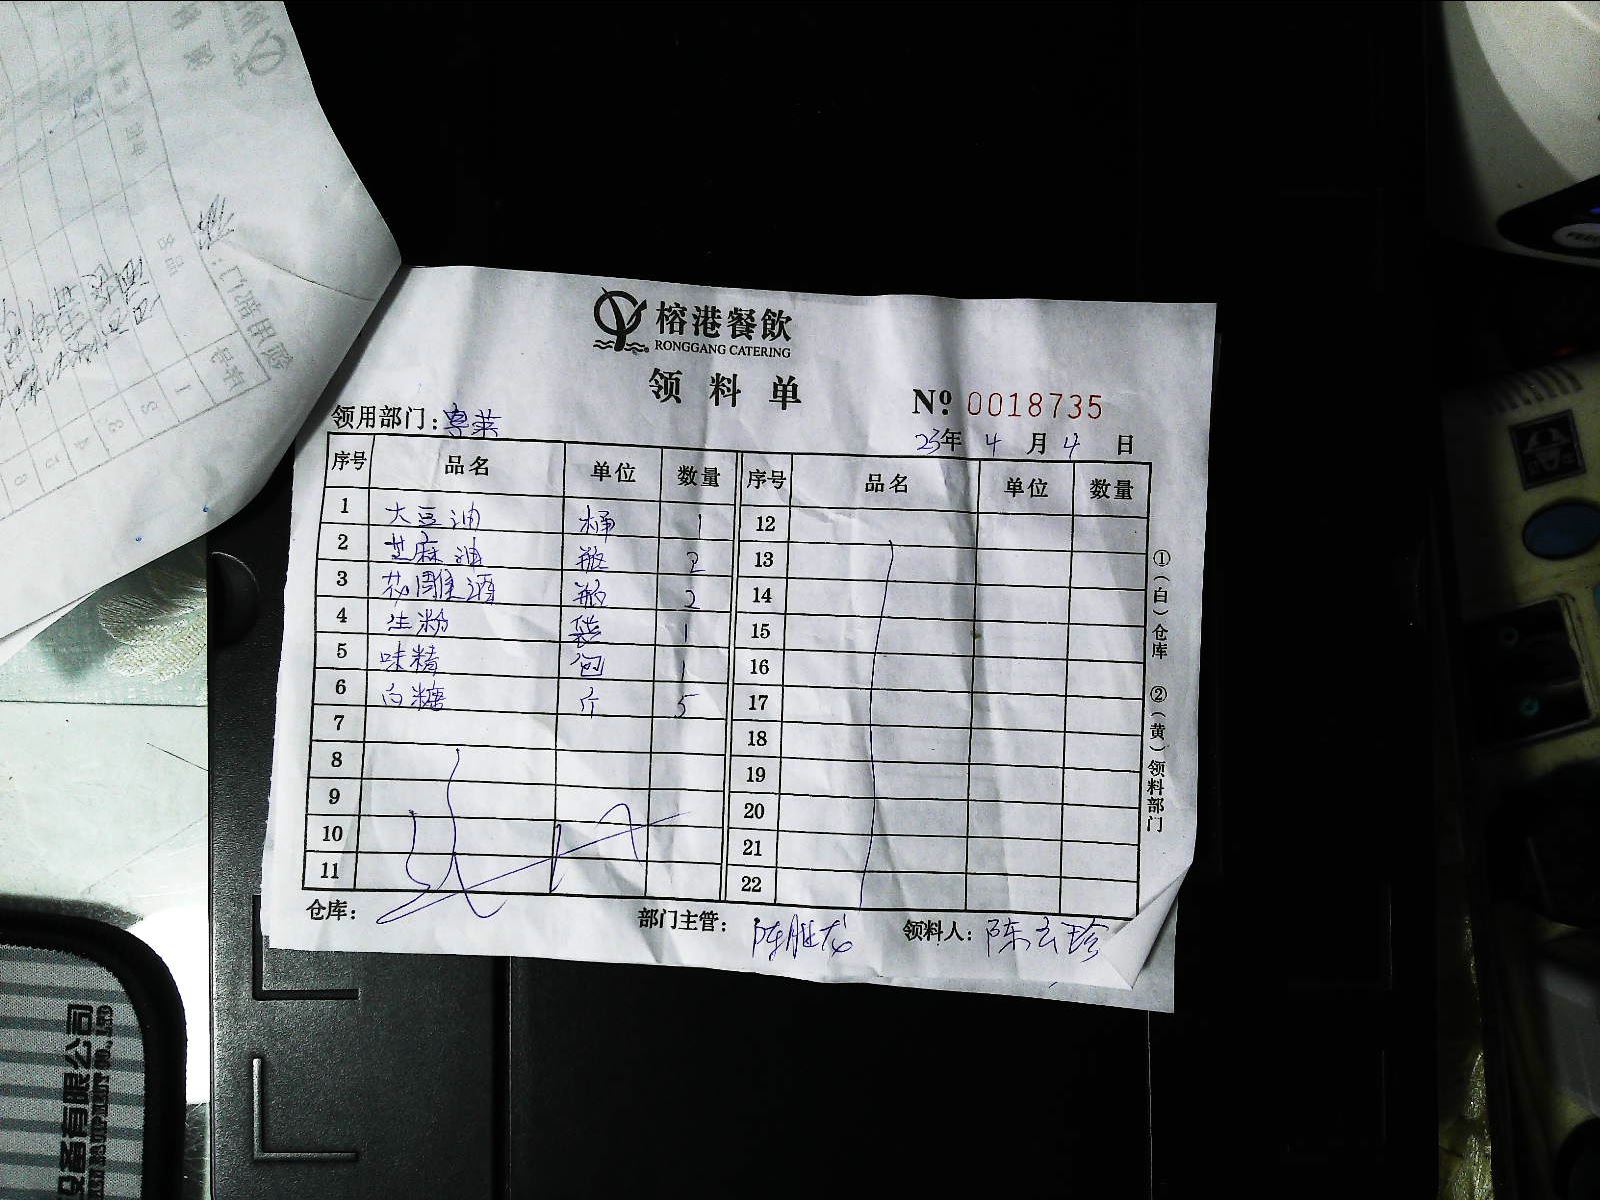 榕港餐飲
RONGGANG CATERING
领料单
№ 0018735
领用部门：粤菜
23年 4 月 4 日
序号 品名 单位 数量 序号 品名 单位 数量
1 大豆油 桶 1 12
2 芝麻油 瓶 2 13
3 花雕酒 瓶 2 14
4 生粉 袋 1 15
5 味精 包 1 16
6 白糖 斤 5 17
7 18
8 19
9 20
10 21
11 22
仓库： 部门主管： 领料人：陈玄珍
①（白）仓库 ②（黄）领料部门
设备有限公司